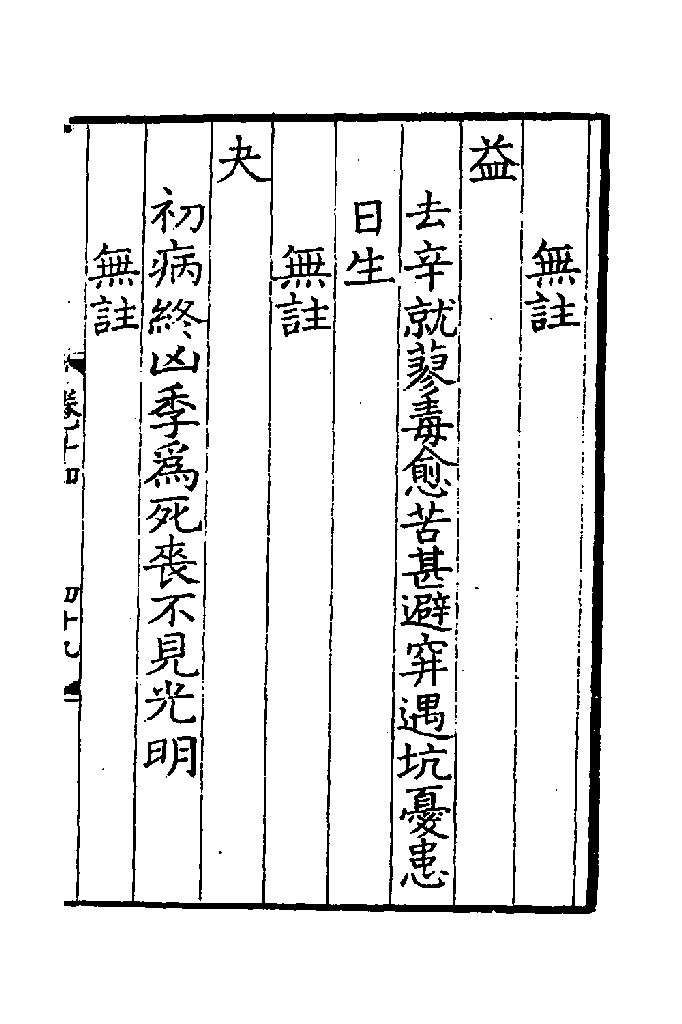 無註
益
去辛就蓼毒愈苦甚避穽遇坑憂患
日生
無註
夬
初病終凶季爲死喪不見光明
無註